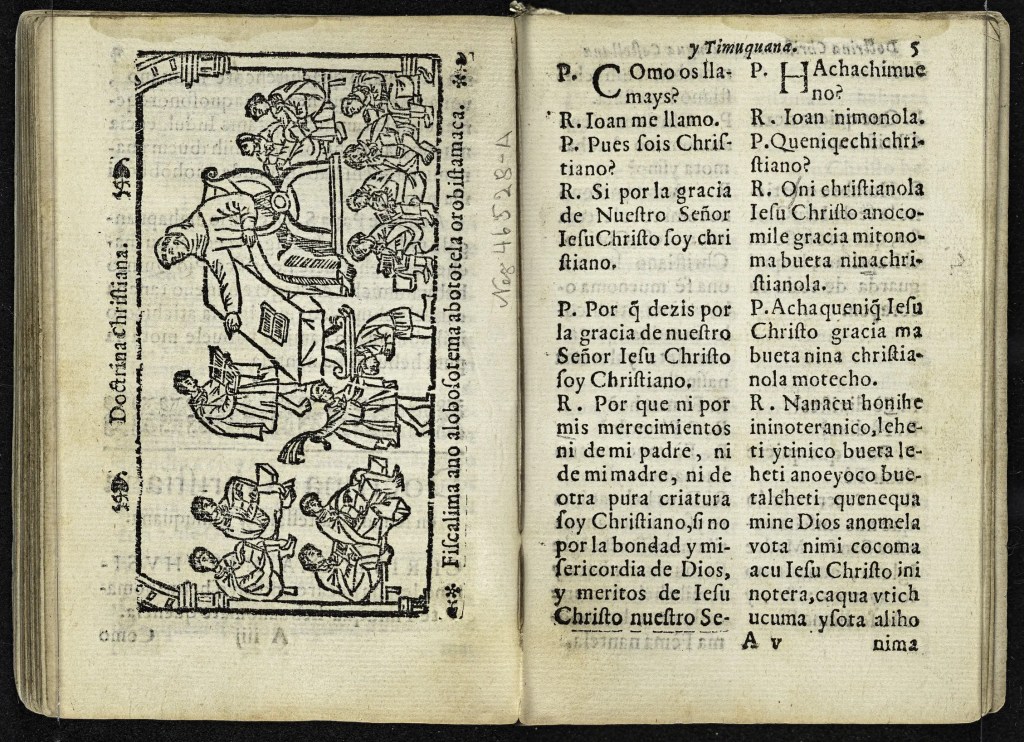 Doctrina Christiana.
Fiscalima ano alobosotema abototela orobistamaca.
Neg 46528-A
y Timuquana. 5
P. COmo os lla-
mays?
R. Ioan me llamo.
P. Pues sois Chris-
tiano?
R. Si por la gracia
de Nuestro Señor
IesuChristo soy chri
stiano.
P. Por q̃ dezis por
la gracia de nuestro
Señor Iesu Christo
soy Christiano.
R. Por que ni por
mis merecimientos
ni de mi padre, ni
de mi madre, ni de
otra pura criatura
soy Christiano, si no
por la bondad y mi-
sericordia de Dios,
y meritos de Iesu
Christo nuestro Se-
P. HAchachimue
no?
R. Ioan nimonola.
P.Queniqechi chri-
stiano?
R. Oni christianola
Iesu Christo anoco-
mile gracia mitono-
ma bueta ninachri-
stianola.
P. Achaqueniq̃ Iesu
Christo gracia ma
bueta nina christia-
nola motecho.
R. Nanacu honihe
ininoteranico, lehe-
ti ytinico bueta le-
heti anoeyoco bue-
taleheti quenequa
mine Dios anomela
vota nimi cocoma
acu Iesu Christo ini
notera, caqua vtich
ucuma ysota aliho
A v nima